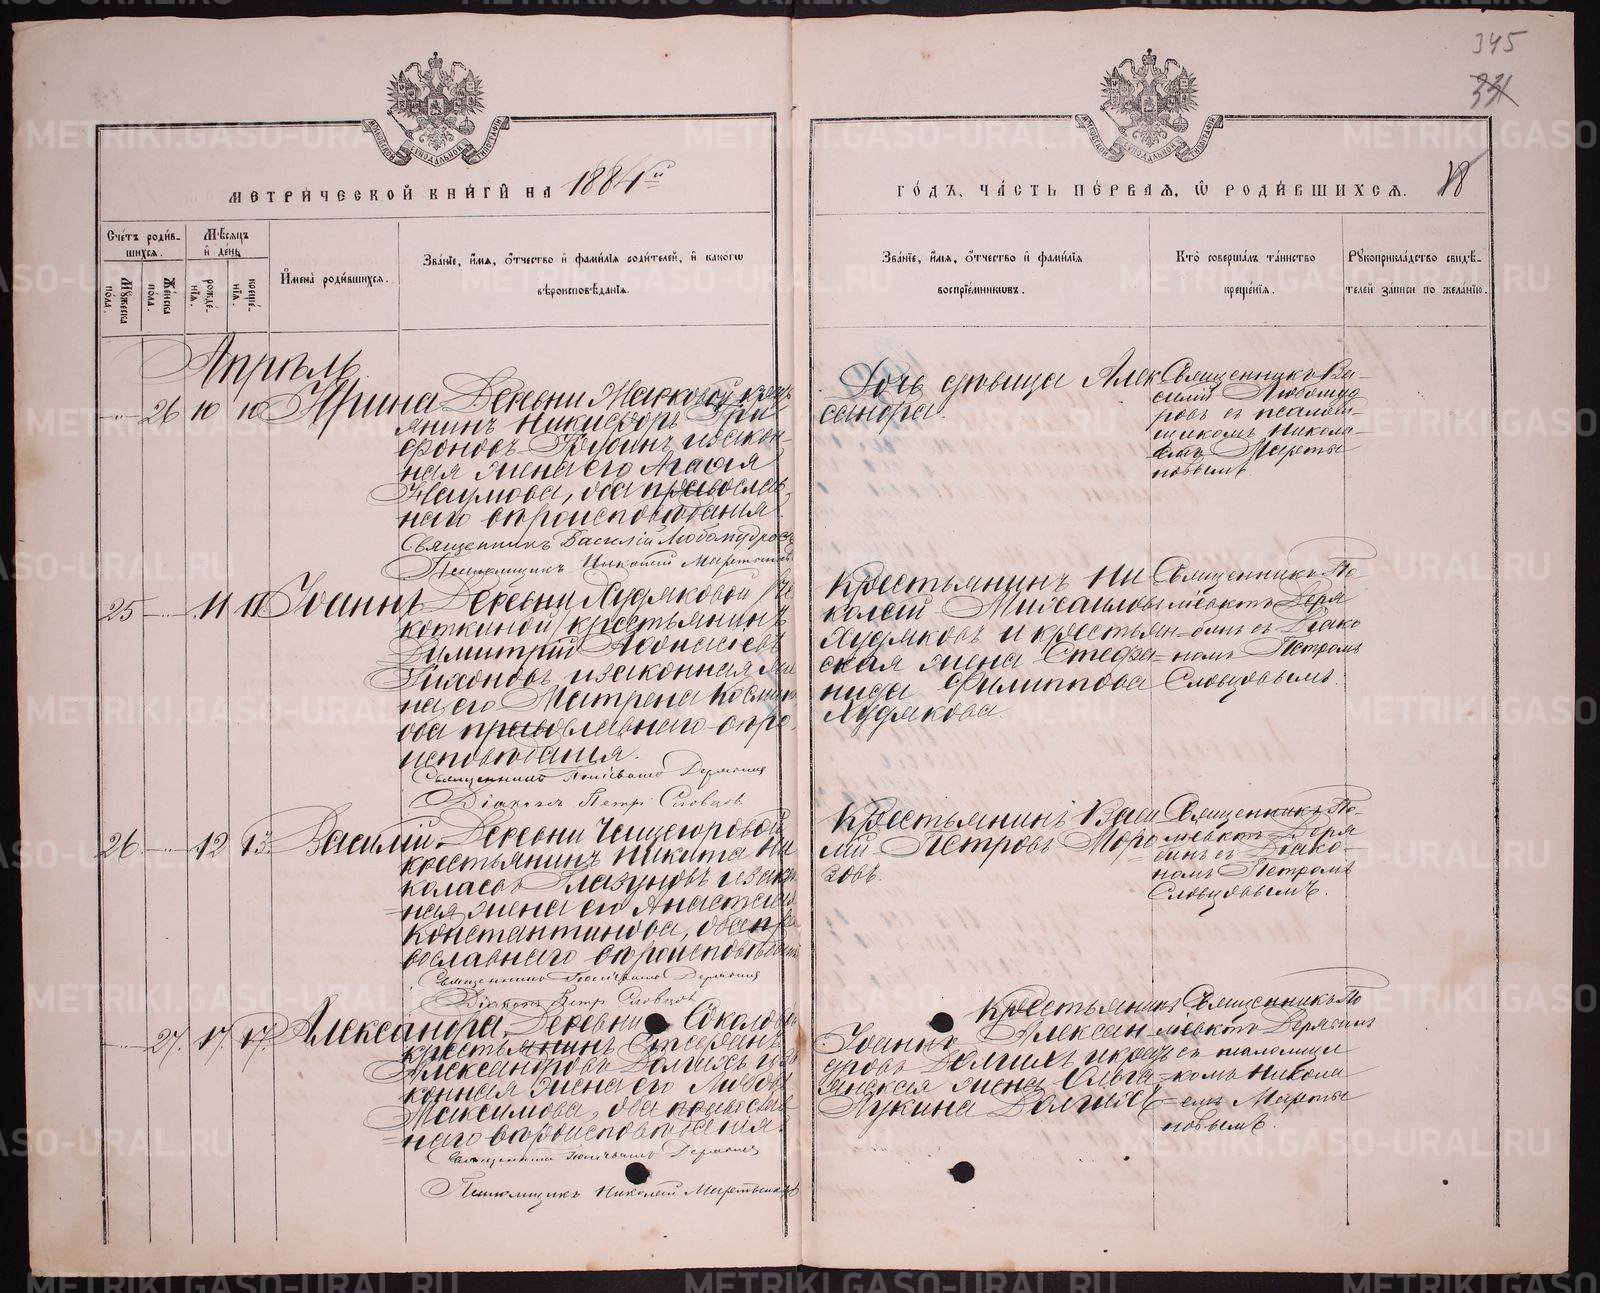 345
331
МЕТРИ́ЧЕСКОЙ КНИ́ГИ НА 1884й
ГО́ДЪ, ЧА́СТЬ ПЕ́РВАЯ, Ѿ РОДИ́ВШИХСЯ. 18
Сче́тъ роди́в-
шихся.
Му́жеска по́ла.
Же́нска по́ла.
Мѣ́сяцъ и де́нь
рожде́-
нія.
креще́-
нія.
И́мена̀ роди́вшихся.
Зва́ніе, и́мя, о́тчество и фами́лія роди́телей, и како́гѡ
вѣроисповѣ́данія.
Зва́ніе, и́мя, о́тчество и фами́лія
воспріе́мниковъ.
Кто̀ соверша́лъ та́инство
креще́нія.
Рукоприкла́дство свидѣ́-
телей за́писи по жела́нію.
Апрѣль
26 10 10 Ирина
Деревни Жарковой крест
янинъ Никифоръ Три
фоновъ и закон-
ная жена его Агафія
Наумова, оба православ
наго вѣроисповѣданія
Священникъ Василій Любомудровъ
Псаломщикъ Николай Мартыновъ
Дочь дѣвица Алек
сандра.
Священникъ Ва-
силій Любомуд
ровъ съ псалом-
щикомъ Никола-
емъ Марты
новымъ
25 11 11 Іоаннъ
Деревни Худяковой /
коткиной/ крестьянинъ
Димитрій Аѳонасіевъ
Тихоновъ и законная же
на его Матрена Косьмина
оба православнаго вѣро-
исповѣданія.
Священникъ Дерябинъ
Діаконъ Петръ Словцовъ
Крестьянинъ Ни
колай Михаиловъ
Худяковъ и крестьян=
ская жена Стефа=
нида Филиппова
Худякова.
Священникъ По-
ліевктъ Деря
бинъ съ Діако
номъ Петромъ
Словцовымъ.
26 12 13 Василій.
Деревни Чещегоровой
крестьянинъ Никита Ни
колаевъ Глазуновъ и закон
=ная жена его Анастасія
Константинова, оба пра
вославнаго вѣроисповѣданія
Священникъ Поліевктъ Дерябинъ
Діаконъ Петръ Словцовъ
Крестьянинъ Васи
лій Петровъ Моро
зовъ.
Священникъ По-
ліевктъ Деря
бинъ съ Діако-
номъ Петромъ
Словцовымъ.
27. 17. 17. Александра.
Деревни Соколовой
крестьянинъ Стефанъ
Александровъ Долгихъ и за
конная жена его Любовь
Максимова, оба православ
=наго вѣроисповѣданія.
Священникъ Поліевктъ Дерябинъ
Псаломщикъ Николай Мартыновъ
Крестьянинъ
Іоаннъ Алексан
дровъ Долгихъ и крест
янская жена Ольга
Лукина Долгихъ
Священникъ По
ліевктъ Дерябинъ
съ псаломщи
=комъ Никола
=емъ Марты
новымъ.
METRIKI.GASO-URAL.RU